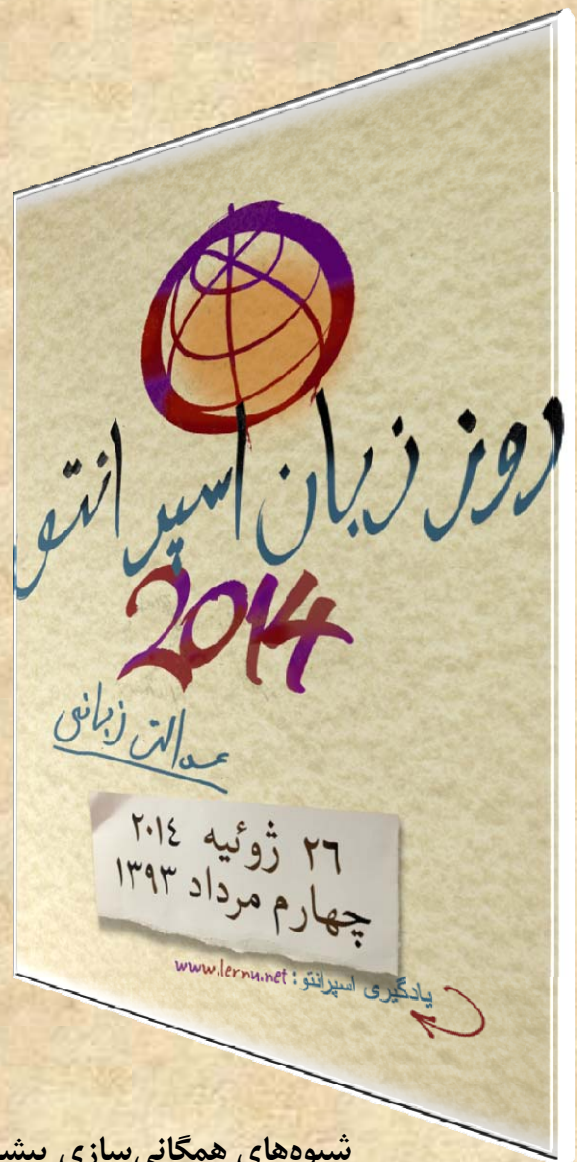 روز زبان اسپرانتو
2014
عدالت زبانی
٢٦ ژوئیه ٢٠١٤
چهارم مرداد ۱۳۹۳
یادگیری اسپرانتو : www.lernu.net
شیوه‌های همگانی‌سازی